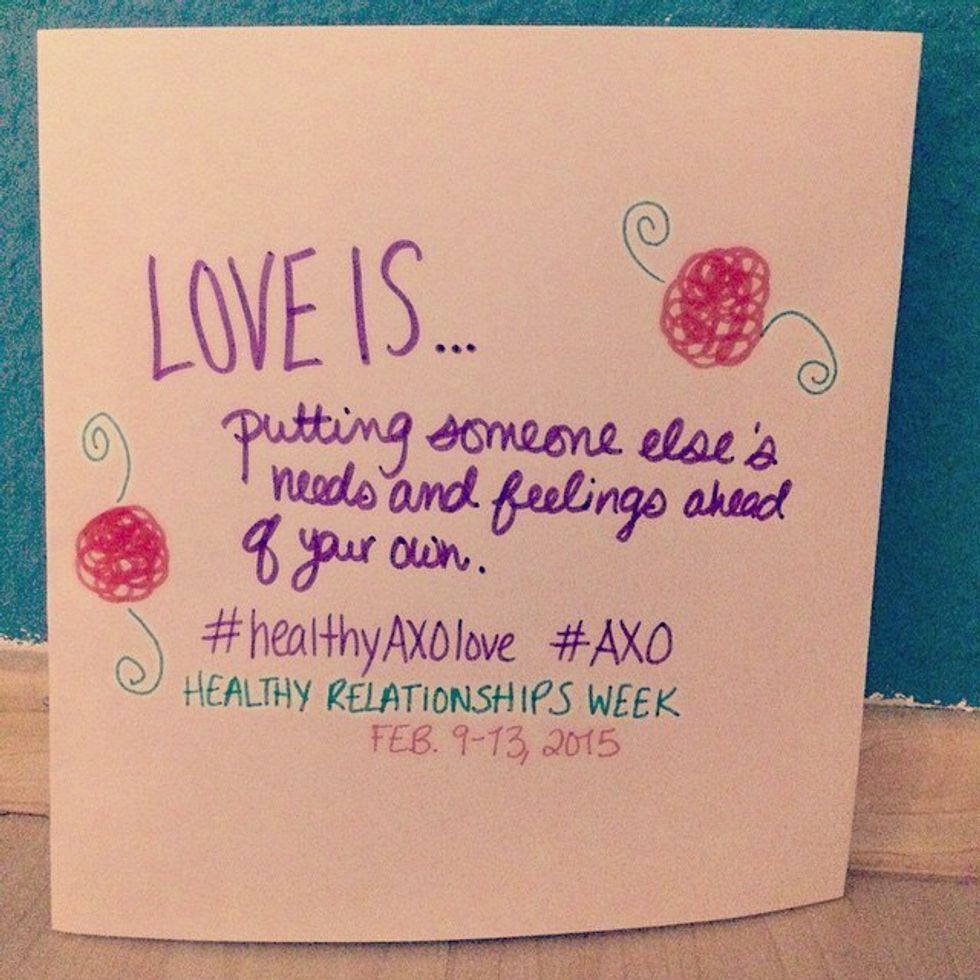 LOVE IS...
putting someone else's
needs and feelings ahead
of your own.
#healthyAXOlove #AXO
HEALTHY RELATIONSHIPS WEEK
FEB. 9-13, 2015